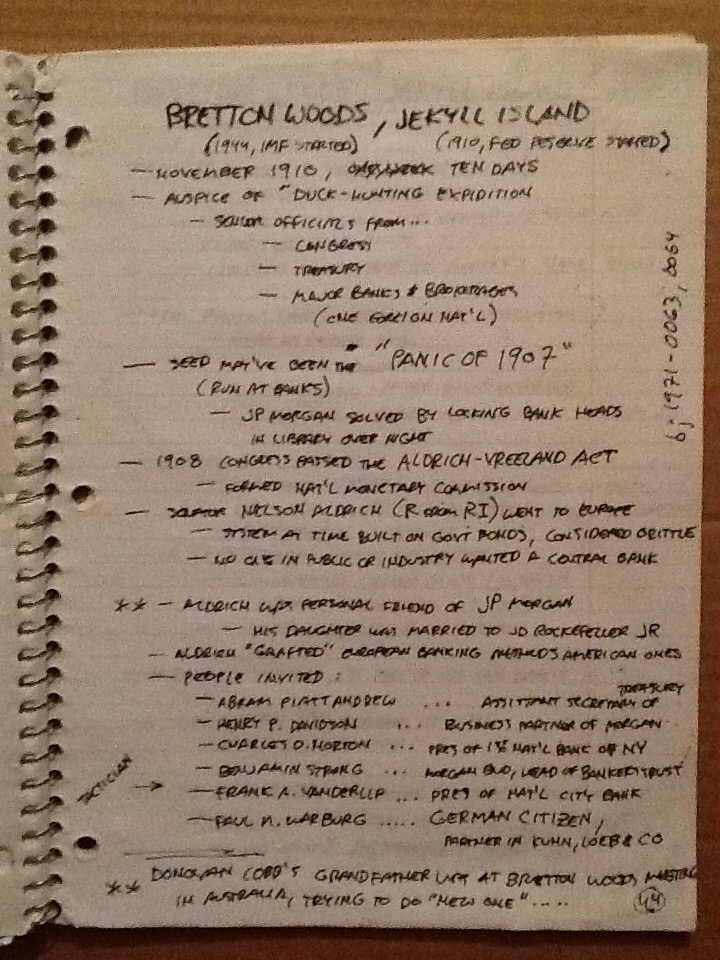 BRETTON WOODS, JEKYLL ISLAND
(1944, IMF STARTED) (1910, FED RESERVE STARTED)
— NOVEMBER 1910, TEN DAYS
— AUSPICE OF "DUCK-HUNTING EXPIDITION
— SENIOR OFFICIALS FROM...
— CONGRESS
— TREASURY
— MAJOR BANKS & BROKERAGES
(ONE FOREIGN NAT'L)
— SEED MAY'VE BEEN THE "PANIC OF 1907"
(RUN AT BANKS)
— JP MORGAN SOLVED BY LOCKING BANK HEADS
IN LIBRARY OVER NIGHT
— 1908 CONGRESS PASSED THE ALDRICH-VREELAND ACT
— FORMED NAT'L MONETARY COMMISSION
— SENATOR NELSON ALDRICH (R FROM RI) WENT TO EUROPE
— SYSTEM AT TIME BUILT ON GOVT BONDS, CONSIDERED BRITTLE
— NO ONE IN PUBLIC OR INDUSTRY WANTED A CENTRAL BANK
** — ALDRICH WAS PERSONAL FRIEND OF JP MORGAN
— HIS DAUGHTER WAS MARRIED TO JD ROCKEFELLER JR
— ALDRICH "GRAFTED" EUROPEAN BANKING METHODS AMERICAN ONES
— PEOPLE INVITED:
— ABRAM PIATT ANDREW ... ASSISTANT SECRETARY OF TREASURY
— HENRY P. DAVIDSON ... BUSINESS PARTNER OF MORGAN
— CHARLES D. NORTON ... PRES OF 1ST NAT'L BANK OF NY
— BENJAMIN STRONG ... MORGAN BUD, HEAD OF BANKERS TRUST
TACTICIAN → — FRANK A. VANDERLIP ... PRES OF NAT'L CITY BANK
— PAUL M. WARBURG ..... GERMAN CITIZEN,
PARTNER IN KUHN, LOEB & CO
** DONOVAN COBB'S GRANDFATHER WAS AT BRETTON WOODS MEETING
IN AUSTRALIA, TRYING TO DO "NEW ONE".....
44
bj1971-0063, 0064